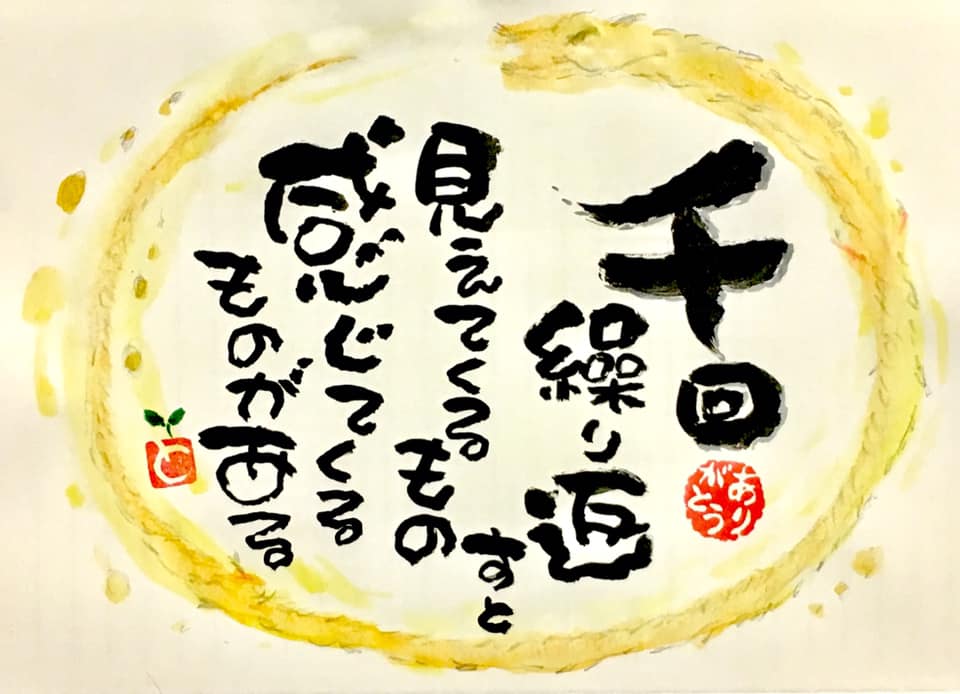 千回
繰り返
すと
見えてくる
もの
感じてくる
ものが有る
ありがとう
と